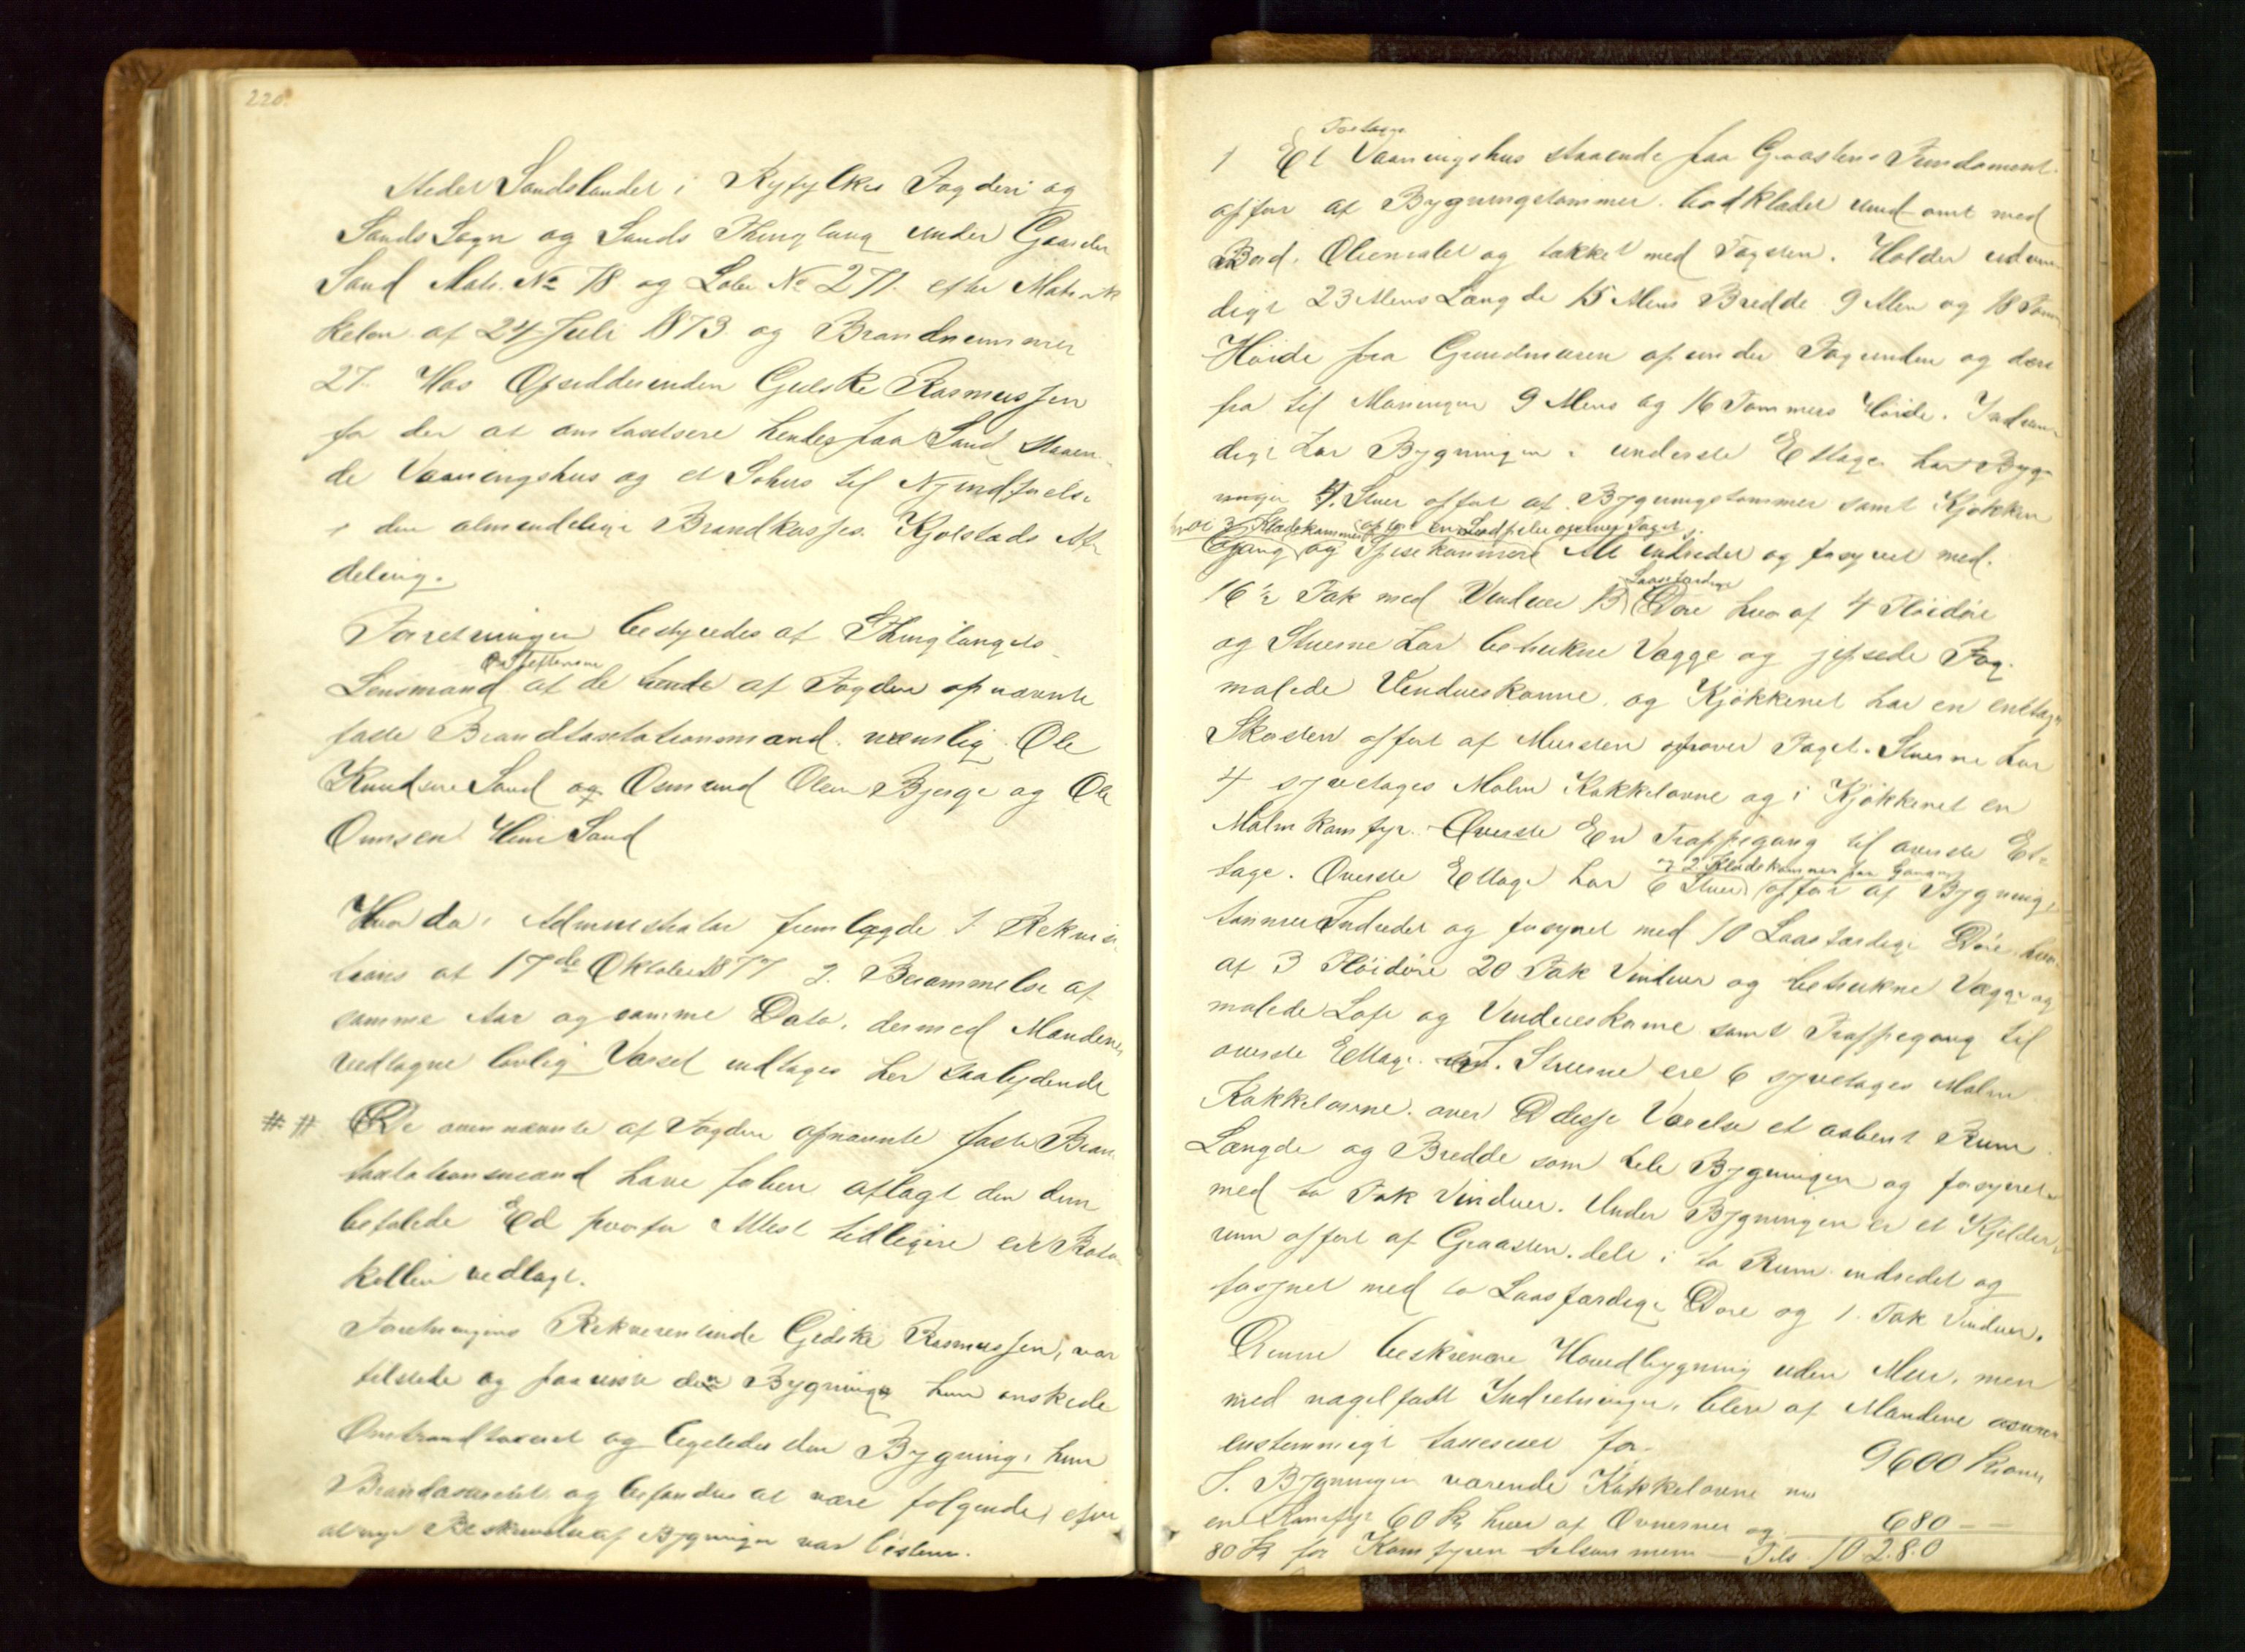 220.
Stedet Sandslandet i Ryfylkes Fogderi og
Sands Sogn og Sands Thinglaug under Gaarden
Sand Matr. No 78 og Løbe No 271. efter Matrik
kelen af 24 Juli 1873 og Brandnummer
27. Hos Opsidderenden Gidske Rasmussen
for der at omtaxtsere hendes paa Sand staaen-
de Vaaningshus og et Søhus til Nyindførelse
i den almindelige Brandkasses Kjøbstads Af-
deling.
Forretningen bestyredes af Thinglaugets
Lensmand af de hende af Fogden opnævnte
faste Brandtaxtationsmænd nemlig Ole
Knudsen Sand og Osmund Olsen Bjerge og Ole
Omsen Hiim Sand
Hvor da Administrator fremlagde 1. Rekvisi
tions af 17de Oktober 1877 2. Berammelse af
samme Aar og samme Dato, dermed Mændenes
vedtagne lovlig Varsel indtages her saalydende
## De ovennævnte af Fogden opnævnte faste Bran
taxtationsmænd have forhen aflagt den dem
befalede Ed hvorfor Attest tidligere er Proto
kollen vedlagt.
Forretningens Rekverentinde Gidske Rasmussen, var
tilstede og paaviste den Bygning hun ønskede
Ombrandtaxeret og ligeledes den Bygning, hun
Brandassureret og befandtes at være følgende, efter
at nye Beskrivelse af Bygningen var bestemt.
Toetages
1 Et Vaaningshus staaende paa Graastens Fundament
opført af Bygningstømmer bordklædet rundt omt med
Bord, Oliemalet og tækket med Tagsten. Holder udven
digt 23 Alens Længde 15 Alens Bredde 9 Alen og 18 Tom
Høide fra Grundmuren op under Tagrenden og der
fra til Møningen 9 Alens og 16 Tommers Høide. Indven-
digt har Bygningen i underste Ettage har Byg
ningen 4. Stuer opført af Bygningstømmer samt Kjøkken
Gang og Spisekammers Alt indredet og forsynet med
16 ½ Fak med Vinduer 13 Laasfærdige Døre hvoraf 4 Fløidøre
og Stuerne har betrukne Vægge og gipsede Tag
malede Vindueskarme, og Kjøkkenet har en enetages
Skorsten opført af Mursten opover Taget. Stuerne har
4 syvetages Malm Kakkelovne og i Kjøkkenet en
Malm Komfyr. Øverste En Trappegang til øverste Et-
tage. Øverste Ettage har 6 Stuer og 2 Klædekammer paa Gangen opført af Bygnings
tømmer Indredet og forsynet med 10 Laasfærdige Døre hvor
af 3 Fløidøre 20 Fak Vinduer og betrukne Vægge og
malede Loft og Vindueskarme samt Trappegang til
øverste Ettage. I. Stuerne ere 6 syvetages Malm
Kakkelovne. over Disse Værelser et aabent Rum
Længde og Bredde som hele Bygningen og forsynet
med to Fak Vinduer. Under Bygningen er et Kjelder
rum opført af Graasten, delt i to Rum indredet og
forsynet med to Laasfærdige Døre og 1. Fak Vinduer.
Denne beskrevne Hovedbygning uden Mur, men
med nagelfast Indretninger, blev af Mændene
enstemmigt taxeret for 9600 Kroner
I. Bygningen værende Kakkelovne
en Komfyr 60 Kr hver af Ovnerner og 680 —
80 Kr for Komfyren tilsammen — Tils. 10280